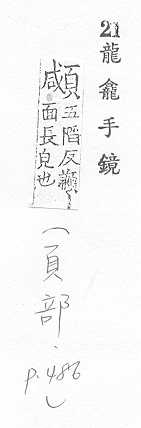 21 龍龕手鏡
顑 五陷反顑顑
面長皃也
(頁部.
p.486)